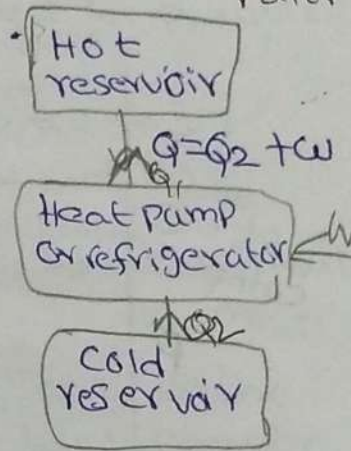 Hot
reservoir
Q=Q2 +W
Q1
Heat pump
Or refrigerator
W
Q2
Cold
reservoir